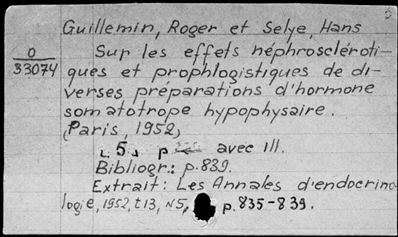 Guillemin, Roger et Selye, Hans
O
33074
Sur les effets néphroscléroti-
ques et prophlogistiques de di-
verses préparations d'hormone
somatotrope hypophysaire.
(Paris, 1952)
[5] p avec ill.
Bibliogr.: p.839.
Extrait: Les Annales d'endocrino
logie, 1952, t 13, N5, p. 835-839.